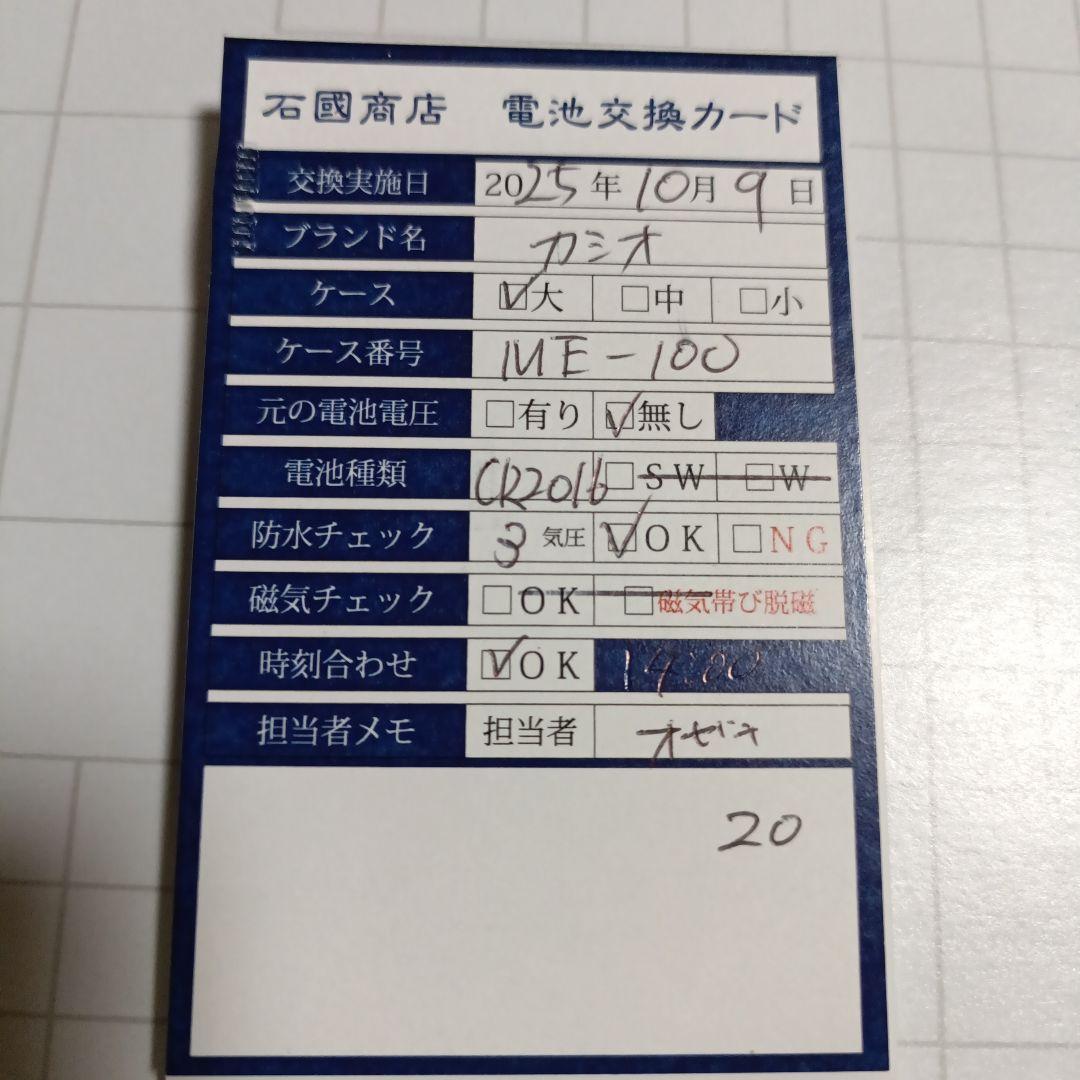 石國商店 電池交換カード
交換実施日 2025年10月9日
ブランド名 カシオ
ケース ☑大 □中 □小
ケース番号 ME-100
元の電池電圧 □有り ☑無し
電池種類 CR2016 □SW □W
防水チェック 3気圧 ☑OK □NG
磁気チェック □OK □磁気帯び脱磁
時刻合わせ ☑OK 14:00
担当者メモ 担当者 オゼキ
20